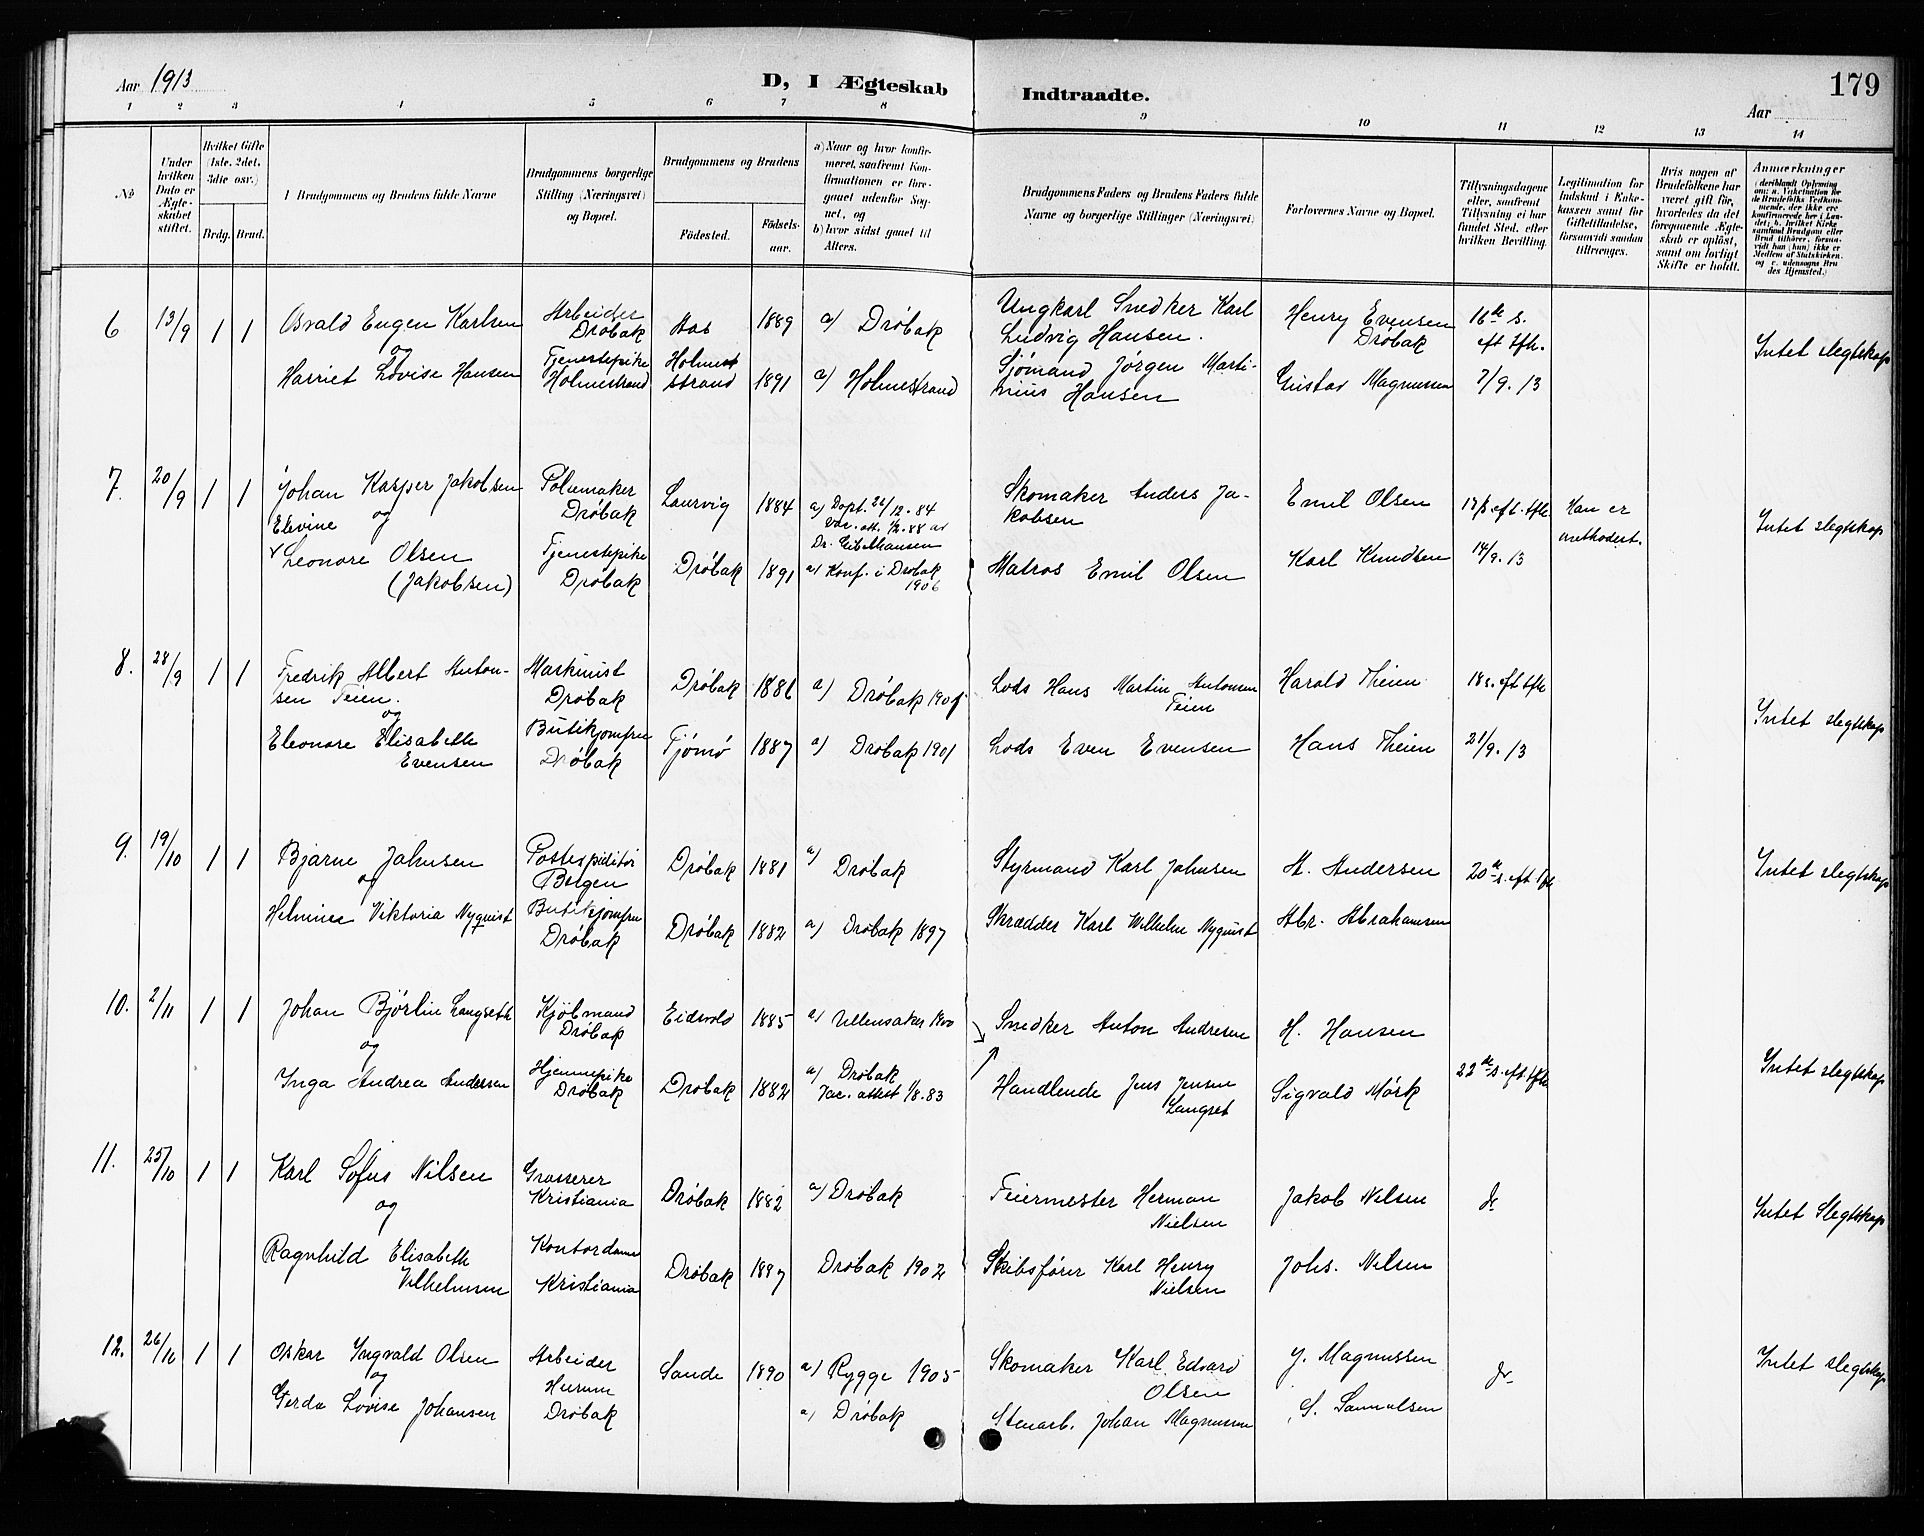 Aar 1913
D, I Ægteskab Indtraadte.
179
Aar
1 2 3 4 5 6 7 8 9 10 11 12 13 14
No
Under hvilken Dato er Ægteskabet stiftet.
Hvilket Gifte (1ste, 2det, 3die osv.)
Brdg. Brud.
I Brudgommens og Brudens fulde Navne
Brudgommens borgerlige Stilling (Næringsvei) og Bopæl.
Brudgommens og Brudens
Fødested. Fødselsaar.
a) Naar og hvor konfirmeret, saafremt Konfirmationen er foregaaet udenfor Sognet, og
b) hvor sidst gaaet til Alters.
Brudgommens Faders og Brudens Faders fulde Navne og borgerlige Stillinger (Næringsvei)
Forlovernes Navne og Bopæl.
Tillysningsdagene eller, saafremt Tillysning ei har fundet Sted, efter hvilken Bevilling.
Legitimation for Indskud i Enkekassen samt for Giftetilladelse, forsaavidt saadan tiltrænges.
Hvis nogen af Brudefolkene har været gift før, hvorledes da det foregaaende Ægteskab er opløst, samt om lovligt Skifte er holdt.
Anmærkninger
6 13/9 1 1 Osvald Eugen Karlsen Arbeider Drøbak 1889 a) Drøbak Ungkarl Snedker Karl Ludvig Hansen. Henry Evensen Drøbak 16de s. eft tfh. Intet slegtskap
og
Harriet Lovise Hansen Tjenestepike Holmestrand Holmestrand 1891 a) Holmestrand Sjømand Jørgen Martinius Hansen Gustav Magnussen 7/9. 13
7. 20/9 1 1 Johan Kasper Jakobsen Drøbak Laurvig 1884 a) Døpt 26/12.84 Skomaker Anders Jakobsen Emil Olsen Han er methodist. Intet slegtskap
og
Elevine Leonore Olsen (Jakobsen) Tjenestepike Drøbak Drøbak 1891 a) Konf. i Drøbak 1906 Matros Emil Olsen Karl Knudsen 14/9. 13
8. 28/9 1 1 Fredrik Albert Antonsen Teien. Maskinist Drøbak Drøbak 1886 a) Drøbak 1901 Lods Hans Martin Antonsen Teien Harald Theien 18s. eft tfh Intet slegtskap
og
Eleonore Elisabeth Evensen Butikjomfru Drøbak Tjømø 1887 a) Drøbak 1901 Lods Even Evensen Hans Theien 21/9. 13
9. 19/10 1 1 Bjarne Johnsen Postexpeditør Bergen Drøbak 1881 a) Drøbak Styrmand Karl Johnsen A. Andersen 20de s. eft tfh Intet slegtskap
og
Helmine Viktoria Nyquist Butikjomfru Drøbak Drøbak 1882 a) Drøbak 1897 Skrædder Karl Wilhelm Nyquist Abr. Abrahamsen
10. 2/11 1 1 Johan Bjørlin Langseth Kjøbmand Drøbak Eidsvold 1885 a) Ullensaker 1900 Snedker Anton Andresen H. Hansen
og
Inga Andrea Andersen Hjemmepike Drøbak Drøbak 1882 a) Drøbak Vac. attest 1/8.83 Handlende Jens Jensen Langset Sigvald Mørk 22de s. eft tfh Intet slegtskap
11. 25/10 1 1 Karl Sofus Nilsen Grosserer Kristiania Drøbak 1882 a) Drøbak Feiermester Herman Nielsen Jakob Nilsen do Intet Slegtskap
og
Ragnhild Elisabeth Vilhelmine Kontordame Kristiania Drøbak 1887 Drøbak 1902 Skibsfører Karl Henry Nielsen Johs. Nilsen
12. 26/10 1 1 Oskar Ingvald Olsen Arbeider Hurum Sande 1890 a) Rygge 1905 Skomaker Karl Edvard Olsen J. Magnussen do Intet slegtskap
og
Gerda Lovise Johansen Drøbak a) Drøbak Stenarb. Johan Magnussen S. Samuelsen